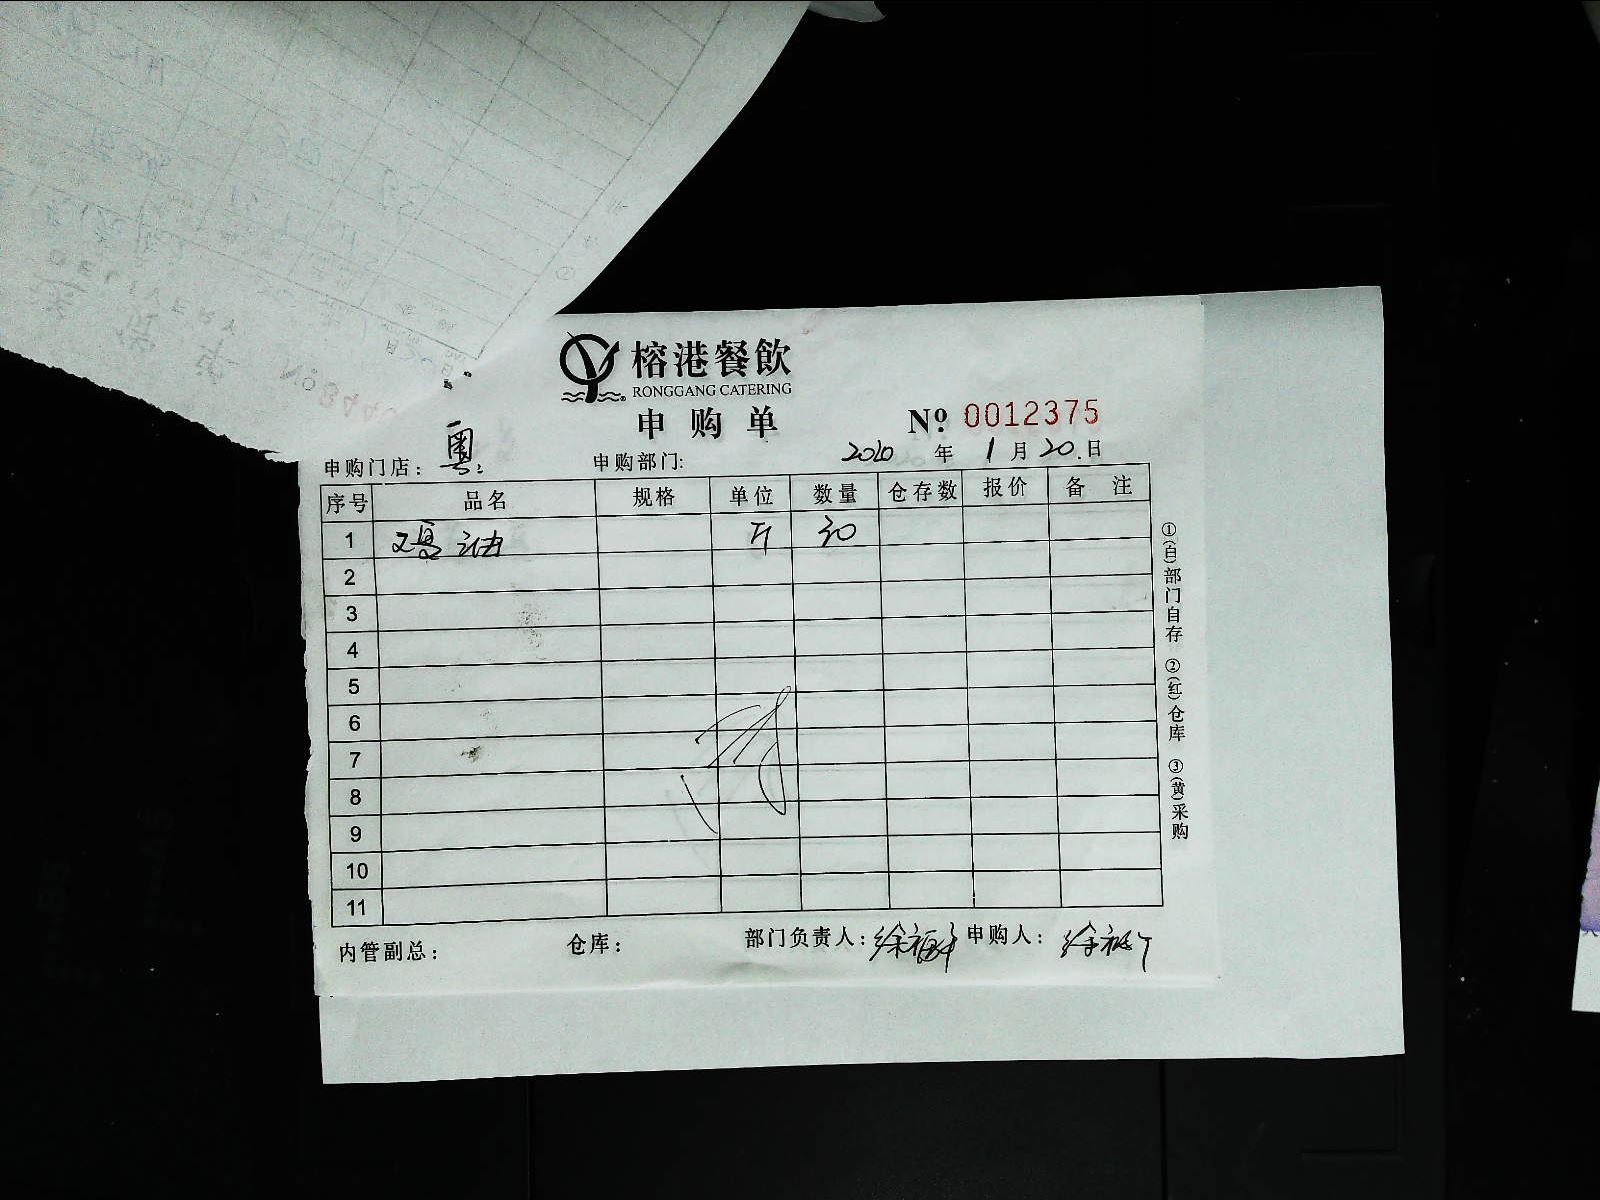 榕港餐飲
RONGGANG CATERING
申购单
№ 0012375
申购门店： 粤 申购部门: 2020 年 1 月 20 日
序号 品名 规格 单位 数量 仓存数 报价 备注
1 鸡油 斤 30
2
3
4
5
6
7
8
9
10
11
内管副总： 仓库： 部门负责人： 申购人：
①(白)部门自存 ②(红)仓库 ③(黄)采购